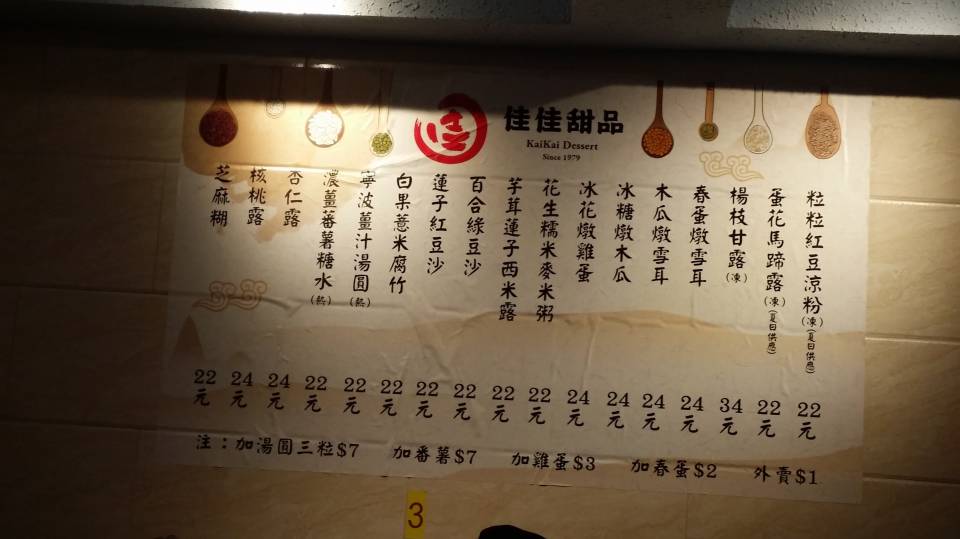 佳佳甜品
KaiKai Dessert
Since 1979
粒粒紅豆涼粉(凍)(夏日供應) 22元
蛋花馬蹄露(凍)(夏日供應) 22元
楊枝甘露(凍) 34元
春蛋燉雪耳 24元
木瓜燉雪耳 24元
冰糖燉木瓜 24元
冰花燉雞蛋 24元
花生糯米麥米粥 22元
芋茸蓮子西米露 22元
百合綠豆沙 22元
蓮子紅豆沙 22元
白果薏米腐竹 22元
寧波薑汁湯圓(熱) 22元
濃薑蕃薯糖水(熱) 22元
杏仁露 24元
核桃露 24元
芝麻糊 22元
注：加湯圓三粒$7 加番薯$7 加雞蛋$3 加春蛋$2 外賣$1
3